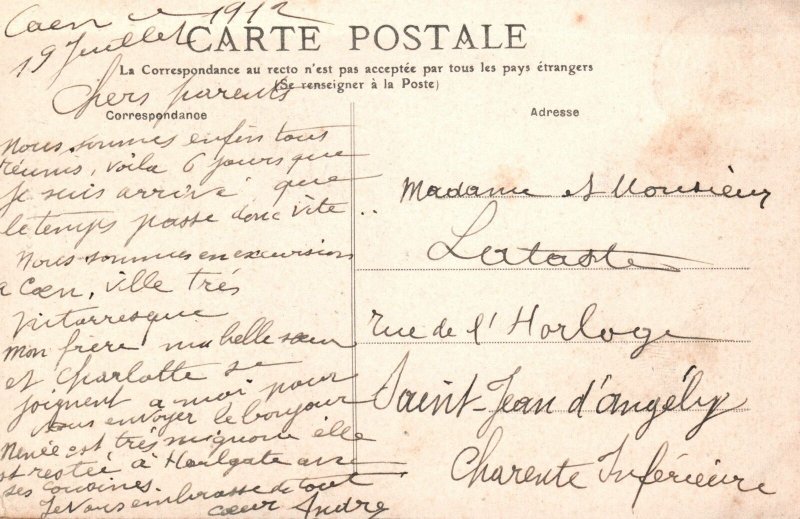 Caen le 1912
19 Juillet
CARTE POSTALE
La Correspondance au recto n'est pas acceptée par tous les pays étrangers
(Se renseigner à la Poste)
Chers parents
Correspondance
Nous sommes enfin tous
réunis, voila 6 jours que
je suis arrivé que
le temps passe donc vite ..
Nous sommes en excursion
a Caen, ville trés
pittorresque
mon frère ma belle sœur
et Charlotte se
joignent a moi pour
vous envoyer le bonjour
Renée est trés mignone elle
est restée à Houlgate avec
ses cousines.
Je vous embrasse de tout
cœur André
Adresse
Madame et Monsieur
Lataste
rue de l'Horloge
Saint-Jean d'angély
Charente Inférieure